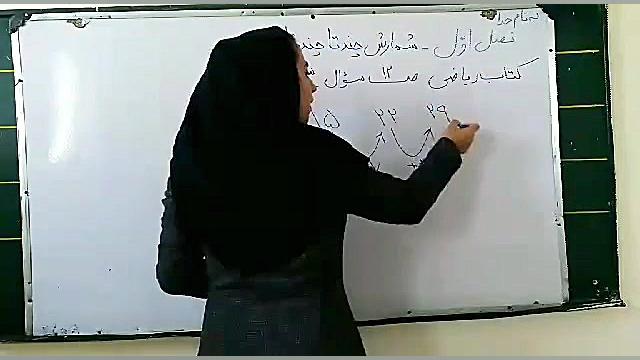 بنام خدا
فصل اوّل - شمارش چند تا چند
کتاب ریاضی ص ۱۲ سؤال
۱۵ ۲۲ ۲۹